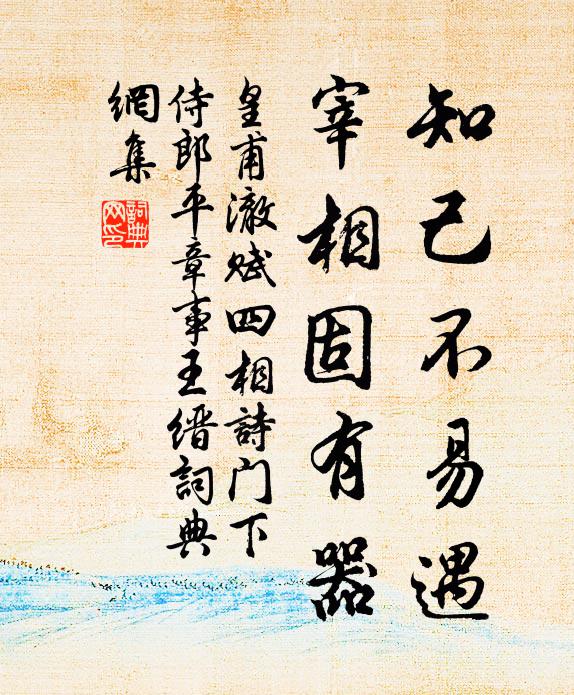 知己不易遇
宰相固有器
皇甫澈賦四相詩门下
侍郎平章事王缙詞典
網集
詞典
网印